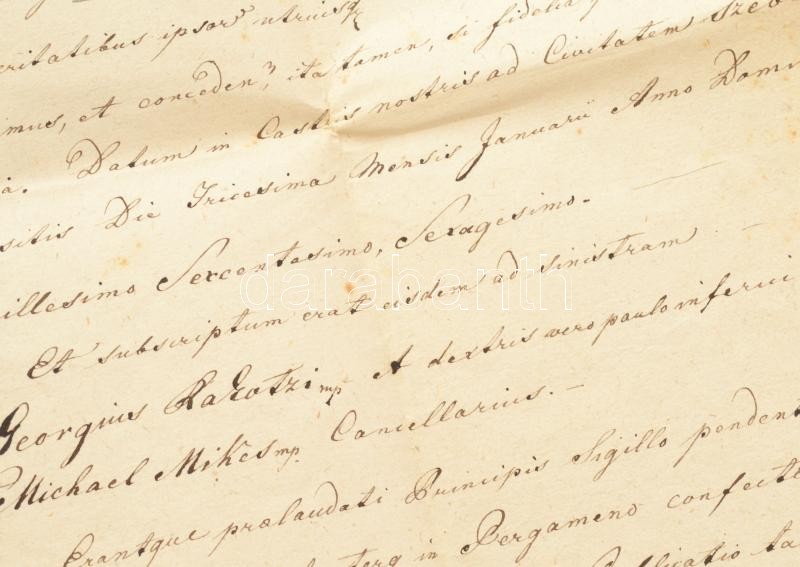 eritatibus ipsor utriusq
imus, et conceden, ita tamen, si fidelia
a. Datum in Castris nostris ad Civitatem Szeb
sitis Die Tricesima Mensis Januarii Anno Domi
illesimo Sexcentesimo, Sexagesimo.-
Et subscriptum erat eisdem ad sinistram
Georgius Rakotzi mp et dextris vero paulo inferiu
Michael Mikes mp. Cancellarius.-
Erantque praelaudati Principis Sigillo pendent
in Pergameno confecte
ta
darabanth